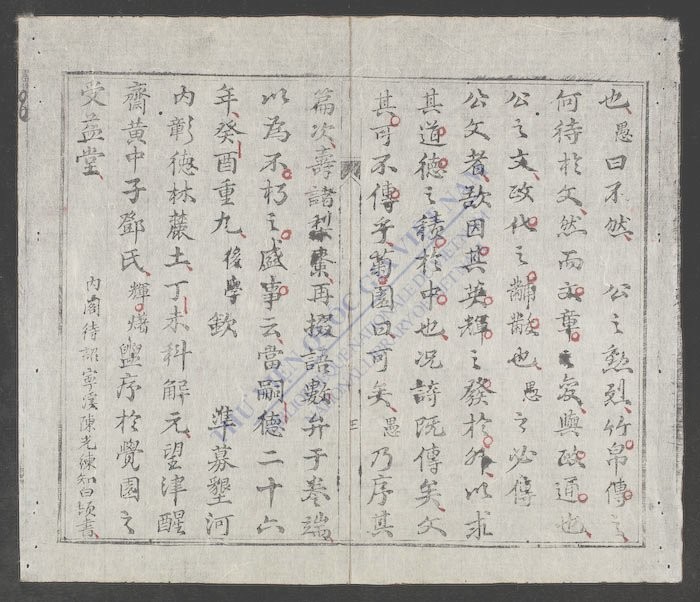 也愚曰不然 公之勲烈竹帛傳之
何待於文然而文章之與政通也
公之文政化之黼黻也愚之必傳
公文者欲因其英輝之發於外以求
其道德之積於中也况詩既傳矣文
其可不傳乎菊園曰可矣愚乃序其
三
篇次壽諸梨棗再掇語數弁于卷端
以為不朽之盛事云當嗣德二十六
年癸酉重九後學欽 準募墾河
内彰德林麓土丁未科解元望津醒
齋黄中子鄧氏輝𤐤盥序於覺園之
受益堂
内閣待詔寧溪陳光練知白頓書
THƯ VIỆN QUỐC GIA VIỆT NAM
BIBLIOTHÈQUE NATIONALE DU VIETNAM
NATIONAL LIBRARY OF VIETNAM